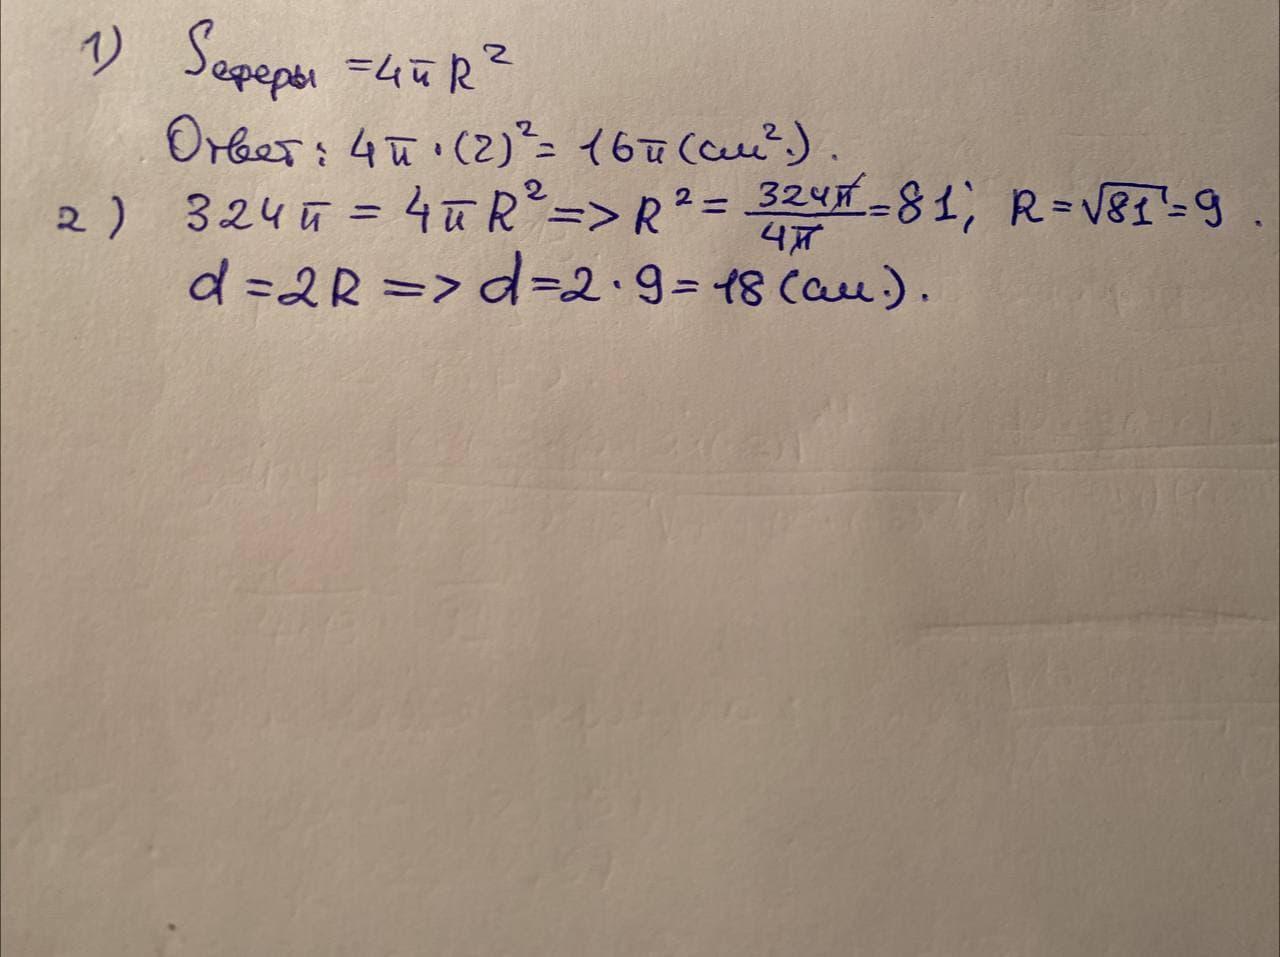 1) Sсферы = 4π R²
Ответ: 4π · (2)² = 16π (см².).
2) 324π = 4π R² => R² = 324π/4π = 81; R = √81 = 9.
d = 2R => d = 2 · 9 = 18 (см.).